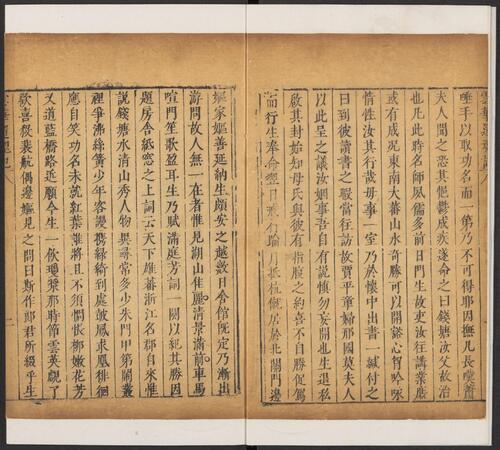 唾手以取功名而一第乃不可得耶因撫几長嘆蕭
夫人聞之恐其悒鬱成疾遂命之曰錢塘汝父故治
也凡此時名師夙儒多前日門生故吏汝往講業
或有成况東南大藩山水奇勝可以開豁心胷吟咏
情性汝其行哉毋事一室乃於懷中出書一緘付之
曰到彼讀書之暇當往訪故賈平章婦邢國莫夫人
以此呈之議汝姻事吾自有說慎勿妄開也生退私
啟其封始知母氏與彼有指腹之約喜不自勝促駕
而行生奉命翌日
月抵杭僦居於北關門邊
嫗家嫗善延納生頗安之越數日舍館既定乃漸出
游問故人無一在者惟見湖山佳麗清景滿前車馬
喧門笙歌盈耳生乃賦滿庭芳詞一闋以紀其勝因
題房舍紙窻之上詞云天下雄藩浙江名郡自來惟
說錢塘水清山秀人物異尋常多少朱門甲第鬧叢
裡爭沸絲簧少年客謾攜綠綺到處鼓鳳求凰徘徊
應自笑功名未就紅葉誰將且不須惆悵柳嫩花芳
又道藍橋路近願今生一飲瓊漿那時節雲英覷了
歡喜殺裴航偶邊嫗見之問曰斯作郎君所綴乎生